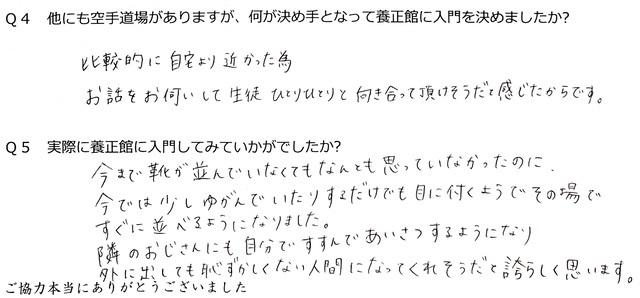 Q4　他にも空手道場がありますが、何が決め手となって養正館に入門を決めましたか?
比較的に自宅より近かった為
お話をお伺いして生徒ひとりひとりと向き合って頂けそうだと感じたからです。
Q5　実際に養正館に入門してみていかがでしたか?
今まで靴が並んでいなくてもなんとも思っていなかったのに、
今では少しゆがんでいたりするだけでも目に付くようでその場で
すぐに並べるようになりました。
隣のおじさんにも自分ですすんであいさつするようになり
外に出しても恥ずかしくない人間になってくれそうだと誇らしく思います。
ご協力本当にありがとうございました